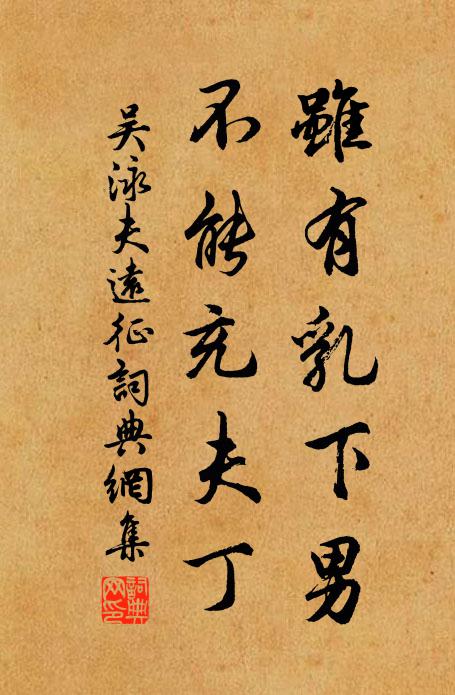 雖有乳下男
不能充夫丁
吴泳夫遠征詞典網集
詞典網印